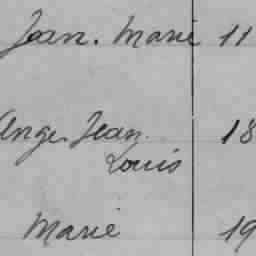 Jean. Marie 11
Ange Jean 18
Louis
Marie 19